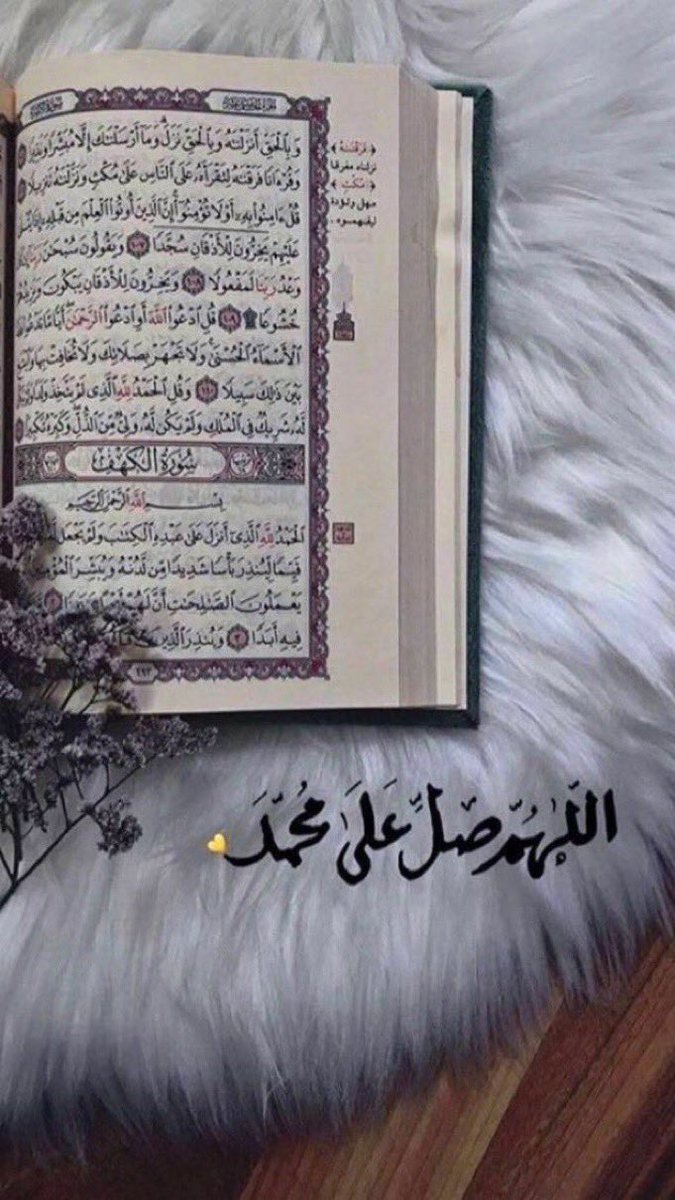 وَبِٱلْحَقِّ أَنزَلْنَٰهُ وَبِٱلْحَقِّ نَزَلَ وَمَآ أَرْسَلْنَٰكَ إِلَّا مُبَشِّرًا وَنَذِيرًا
وَقُرْءَانًا فَرَقْنَٰهُ لِتَقْرَأَهُۥ عَلَى ٱلنَّاسِ عَلَىٰ مُكْثٍ وَنَزَّلْنَٰهُ تَنزِيلًا
قُلْ ءَامِنُوا۟ بِهِۦٓ أَوْ لَا تُؤْمِنُوٓا۟ إِنَّ ٱلَّذِينَ أُوتُوا۟ ٱلْعِلْمَ مِن قَبْلِهِۦٓ إِذَا يُتْلَىٰ
عَلَيْهِمْ يَخِرُّونَ لِلْأَذْقَانِ سُجَّدًا ١٠٧ وَيَقُولُونَ سُبْحَٰنَ رَبِّنَآ
وَعْدُ رَبِّنَا لَمَفْعُولًا ١٠٨ وَيَخِرُّونَ لِلْأَذْقَانِ يَبْكُونَ وَيَزِيدُهُمْ
خُشُوعًا ۩ ١٠٩ قُلِ ٱدْعُوا۟ ٱللَّهَ أَوِ ٱدْعُوا۟ ٱلرَّحْمَٰنَ أَيًّا مَّا تَدْعُوا۟
ٱلْأَسْمَآءُ ٱلْحُسْنَىٰ وَلَا تَجْهَرْ بِصَلَاتِكَ وَلَا تُخَافِتْ بِهَا وَٱبْتَغِ
بَيْنَ ذَٰلِكَ سَبِيلًا ١١٠ وَقُلِ ٱلْحَمْدُ لِلَّهِ ٱلَّذِى لَمْ يَتَّخِذْ وَلَدًا وَلَمْ يَكُن
لَّهُۥ شَرِيكٌ فِى ٱلْمُلْكِ وَلَمْ يَكُن لَّهُۥ وَلِىٌّ مِّنَ ٱلذُّلِّ وَكَبِّرْهُ تَكْبِيرًا
سُورَةُ ٱلْكَهْفِ
بِسْمِ ٱللَّهِ ٱلرَّحْمَٰنِ ٱلرَّحِيمِ
ٱلْحَمْدُ لِلَّهِ ٱلَّذِىٓ أَنزَلَ عَلَىٰ عَبْدِهِ ٱلْكِتَٰبَ وَلَمْ يَجْعَل لَّهُۥ
قَيِّمًا لِّيُنذِرَ بَأْسًا شَدِيدًا مِّن لَّدُنْهُ وَيُبَشِّرَ ٱلْمُؤْمِنِينَ
يَعْمَلُونَ ٱلصَّٰلِحَٰتِ أَنَّ لَهُمْ أَجْرًا
فِيهِ أَبَدًا ٣ وَيُنذِرَ ٱلَّذِينَ قَالُوا۟
٢٩٣
﴿فَرَقْنَٰهُ﴾
نزلناه مفرقا
﴿مُكْثٍ﴾
مهل وتؤدة
ليفهموه.
اللّٰهُمّ صَلِّ عَلَىٰ مُحَمَّدَ